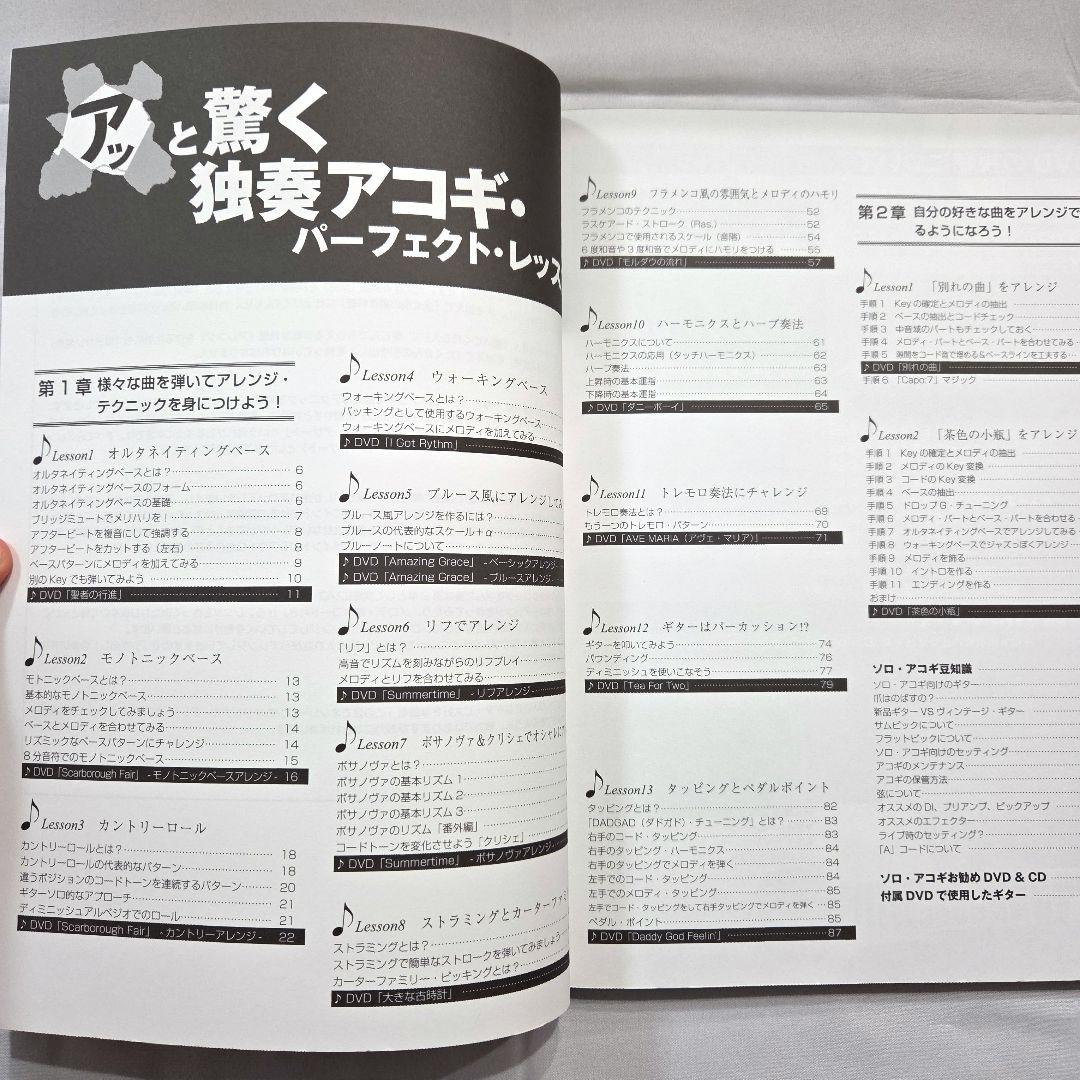 アッと驚く
独奏アコギ・
パーフェクト・レッス
第1章 様々な曲を弾いてアレンジ・
テクニックを身につけよう！
Lesson1 オルタネイティングベース
オルタネイティングベースとは？ 6
オルタネイティングベースのフォーム 6
オルタネイティングベースの基礎 6
ブリッジミュートでメリハリを！ 7
アフタービートを複音にして強調する 8
アフタービートをカットする（左右） 8
ベースパターンにメロディを加えてみる 9
別のKeyでも弾いてみよう 10
♪DVD「聖者の行進」 11
Lesson2 モノトニックベース
モトニックベースとは？ 13
基本的なモノトニックベース 13
メロディをチェックしてみましょう 13
ベースとメロディを合わせてみる 14
リズミックなベースパターンにチャレンジ 14
8分音符でのモノトニックベース 15
♪DVD「Scarborough Fair」 -モノトニックベースアレンジ- 16
Lesson3 カントリーロール
カントリーロールとは？ 18
カントリーロールの代表的なパターン 18
違うポジションのコードトーンを連続するパターン 20
ギターソロ的なアプローチ 21
ディミニッシュアルペジオでのロール 21
♪DVD「Scarborough Fair」 -カントリーアレンジ- 22
Lesson4 ウォーキングベース
ウォーキングベースとは？
バッキングとして使用するウォーキングベース
ウォーキングベースにメロディを加えてみる
♪DVD「I Got Rythm」
Lesson5 ブルース風にアレンジしてみ
ブルース風アレンジを作るには？
ブルースの代表的なスケール+α
ブルーノートについて
♪DVD「Amazing Grace」 -ベーシックアレンジ-
♪DVD「Amazing Grace」 -ブルースアレンジ-
Lesson6 リフでアレンジ
「リフ」とは？
高音でリズムを刻みながらのリフプレイ
メロディとリフを合わせてみる
♪DVD「Summertime」 -リフアレンジ-
Lesson7 ボサノヴァ&クリシェでオシャレに
ボサノヴァとは？
ボサノヴァの基本リズム1
ボサノヴァの基本リズム2
ボサノヴァの基本リズム3
ボサノヴァのリズム「番外編」
コードトーンを変化させよう「クリシェ」
♪DVD「Summertime」 -ボサノヴァアレンジ-
Lesson8 ストラミングとカーターファミ
ストラミングとは？
ストラミングで簡単なストロークを弾いてみましょう
カーターファミリー・ピッキングとは？
♪DVD「大きな古時計」
Lesson9 フラメンコ風の雰囲気とメロディのハモリ
フラメンコのテクニック 52
ラスケアード・ストローク（Ras.） 52
フラメンコで使用されるスケール（音階） 54
6度和音や3度和音でメロディにハモリをつける 55
♪DVD「モルダウの流れ」 57
Lesson10 ハーモニクスとハープ奏法
ハーモニクスについて 61
ハーモニクスの応用（タッチハーモニクス） 62
ハープ奏法 63
上昇時の基本運指 63
下降時の基本運指 64
♪DVD「ダニーボーイ」 65
Lesson11 トレモロ奏法にチャレンジ
トレモロ奏法とは？ 69
もう一つのトレモロ・パターン 70
♪DVD「AVE MARIA（アヴェ・マリア）」 71
Lesson12 ギターはパーカッション!?
ギターを叩いてみよう 74
パウンディング 76
ディミニッシュを使いこなそう 77
♪DVD「Tea For Two」 79
Lesson13 タッピングとペダルポイント
タッピングとは？ 82
「DADGAD（ダドガド）・チューニング」とは？ 83
右手のコード・タッピング 83
右手のタッピング・ハーモニクス 83
右手のタッピングでメロディを弾く 84
左手でのコード・タッピング 84
左手でのメロディ・タッピング 85
左手でコード・タッピングをして右手タッピングでメロディを弾く 85
ペダル・ポイント 85
♪DVD「Daddy God Feelin'」 87
第2章 自分の好きな曲をアレンジで
るようになろう！
Lesson1 「別れの曲」をアレンジ
手順1 Keyの確定とメロディの抽出
手順2 ベースの抽出とコードチェック
手順3 中音域のパートもチェックしておく
手順4 メロディ・パートとベース・パートを合わせてみる
手順5 隙間をコード音で埋める&ベースラインを工夫する
♪DVD「別れの曲」
手順6 「Capo:7」マジック
Lesson2 「茶色の小瓶」をアレンジ
手順1 Keyの確定とメロディの抽出
手順2 メロディのKey変換
手順3 コードのKey変換
手順4 ベースの抽出
手順5 ドロップG・チューニング
手順6 メロディ・パートとベース・パートを合わせる
手順7 オルタネイティングベースでアレンジしてみる
手順8 ウォーキングベースでジャズっぽくアレンジ
手順9 メロディを飾る
手順10 イントロを作る
手順11 エンディングを作る
おまけ
♪DVD「茶色の小瓶」
ソロ・アコギ豆知識
ソロ・アコギ向けのギター
爪はのばすの？
新品ギターVSヴィンテージ・ギター
サムピックについて
フラットピックについて
ソロ・アコギ向けのセッティング
アコギのメンテナンス
アコギの保管方法
弦について
オススメのDI、プリアンプ、ピックアップ
オススメのエフェクター
ライブ時のセッティング？
「A」コードについて
ソロ・アコギお勧めDVD & CD
付属DVDで使用したギター